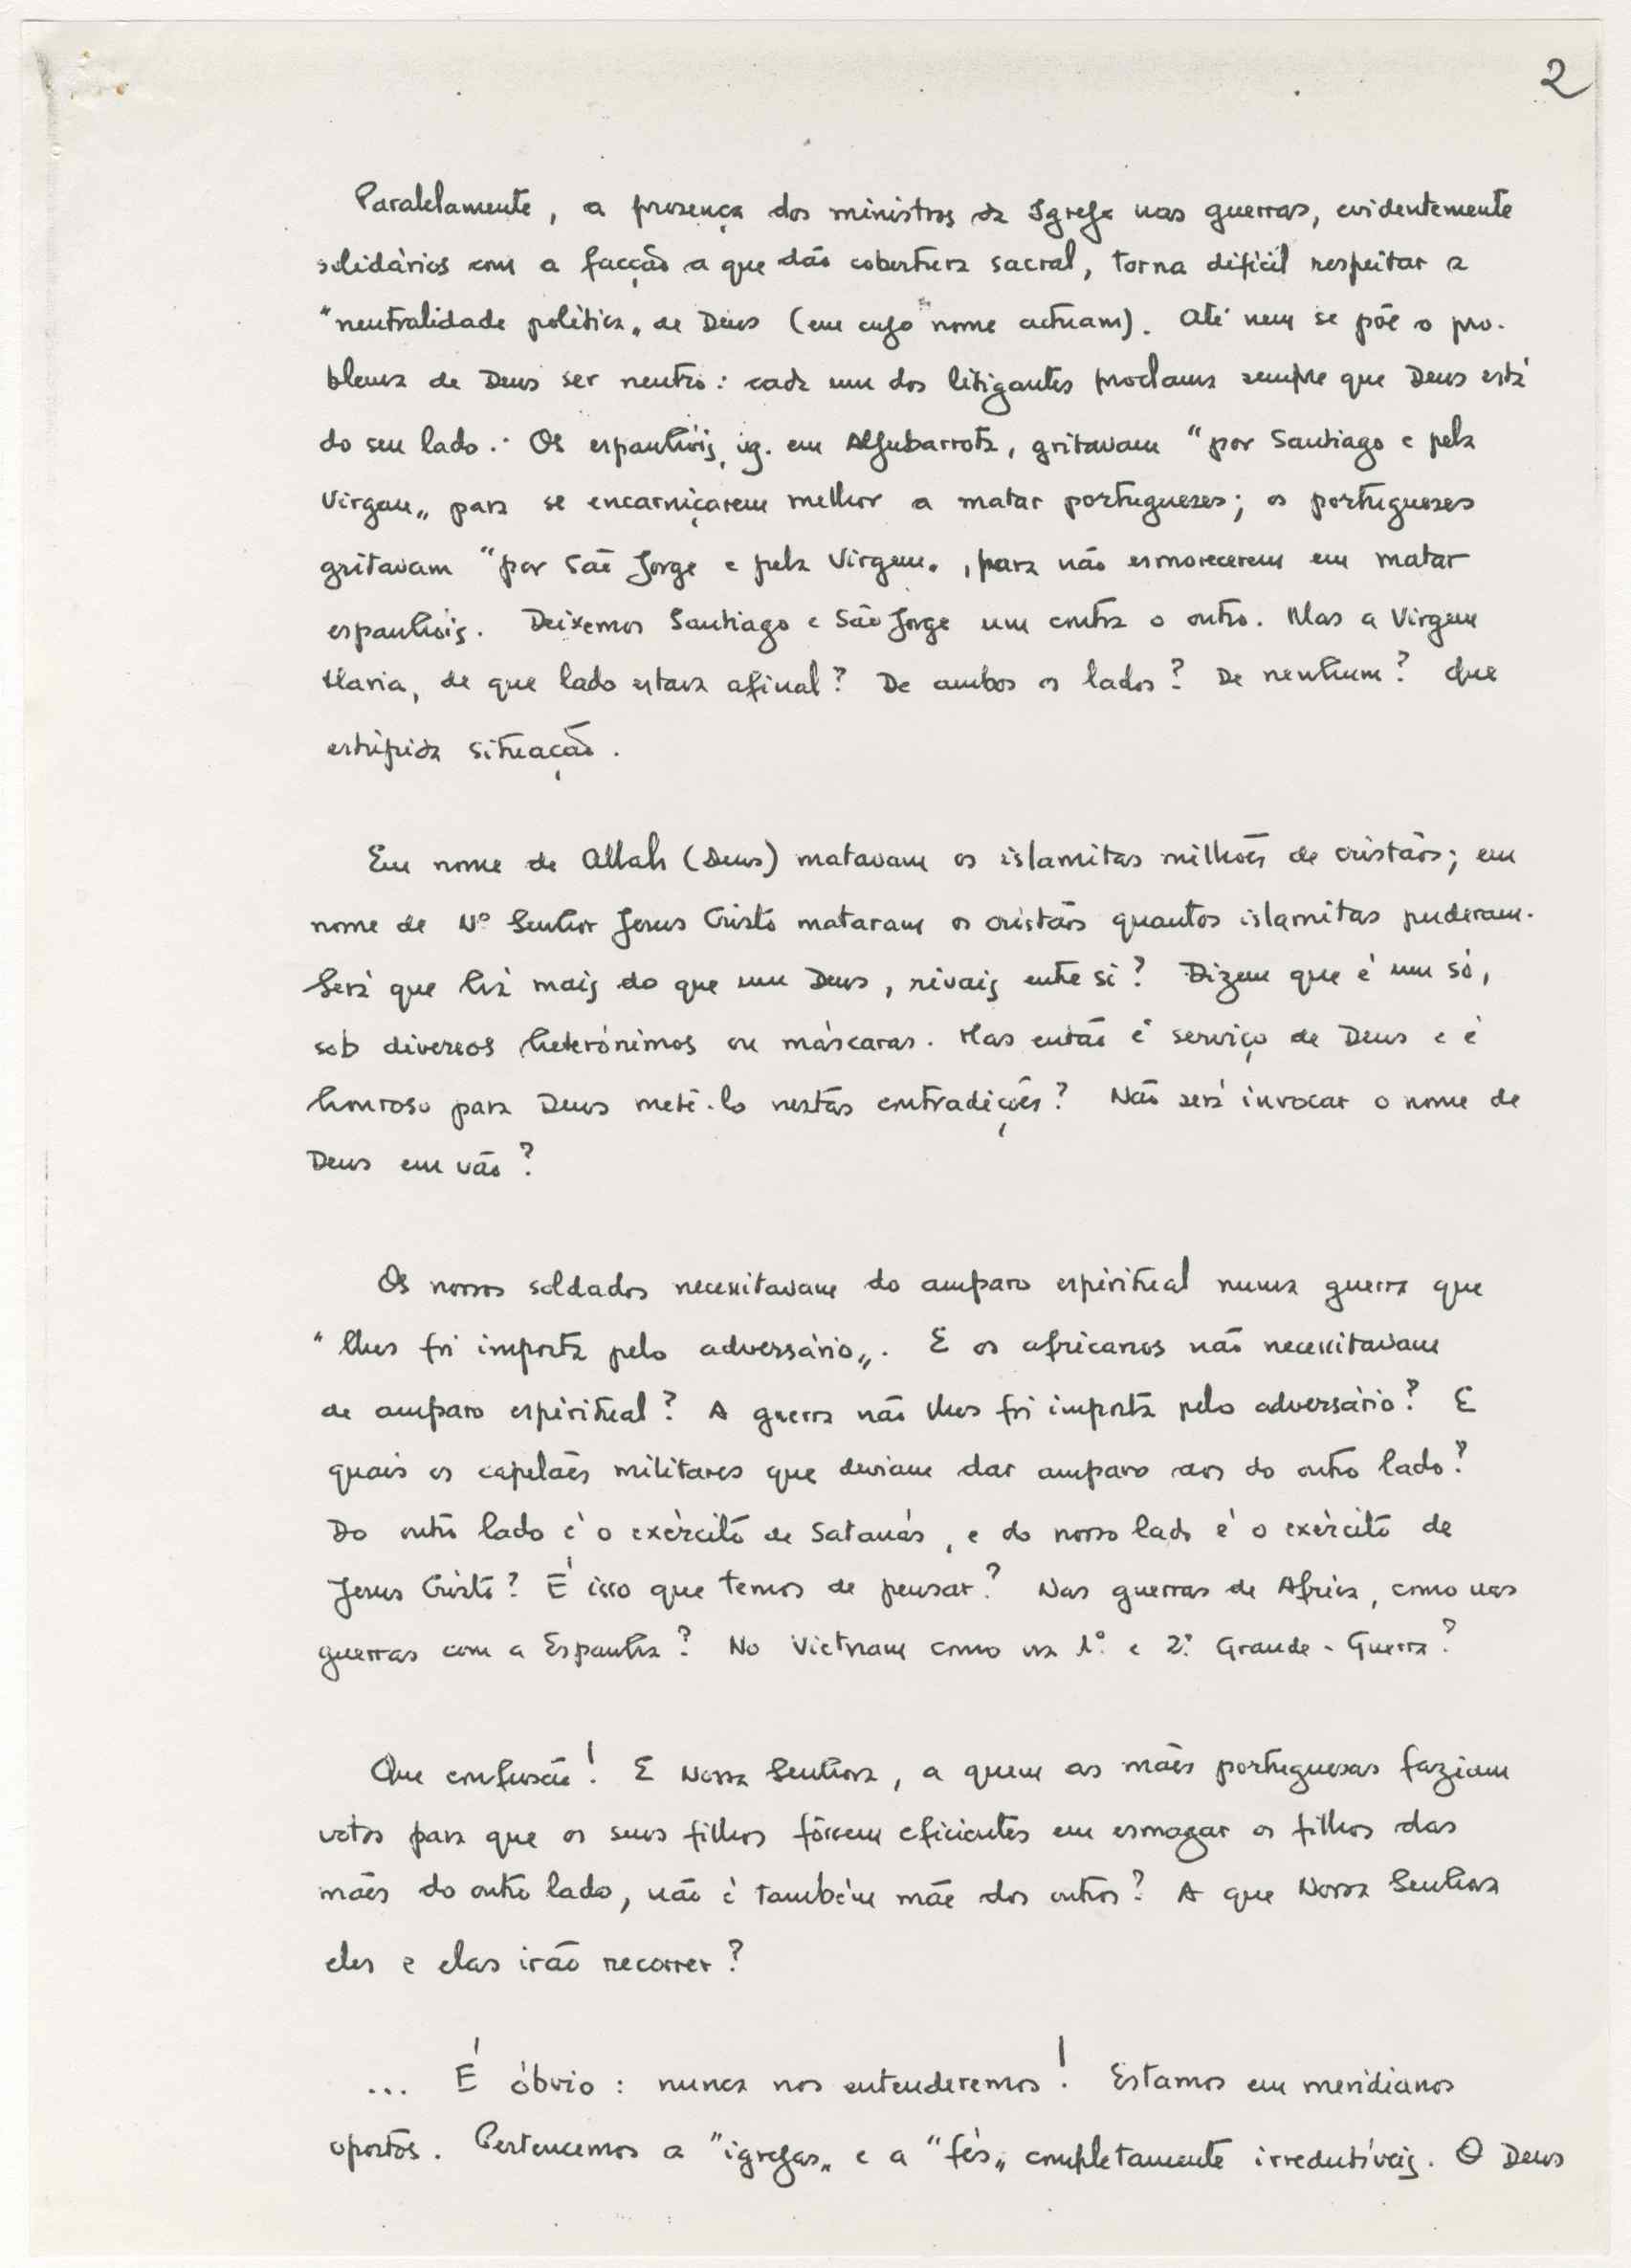 2
Paralelamente, a presença dos ministros da Igreja nas guerras, evidentemente
solidários com a facção a que dão cobertura sacral, torna difícil respeitar a
"neutralidade política" de Deus (em cujo nome actuam). Até nem se põe o pro-
blema de Deus ser neutro: cada um dos litigantes proclama sempre que Deus está
do seu lado. Os espanhóis, vg. em Aljubarrota, gritavam "por Santiago e pela
Virgem" para se encarniçarem melhor a matar portugueses; os portugueses
gritavam "por São Jorge e pela Virgem", para não esmorecerem em matar
espanhóis. Deixemos Santiago e São Jorge um contra o outro. Mas a Virgem
Maria, de que lado estava afinal? De ambos os lados? De nenhum? Que
estúpida situação.
Em nome de Allah (Deus) matavam os islamitas milhões de cristãos; em
nome de Nº Senhor Jesus Cristo mataram os cristãos quantos islamitas puderam.
Será que há mais do que um Deus, rivais entre si? Dizem que é um só,
sob diversos heterónimos ou máscaras. Mas então é serviço de Deus e é
honroso para Deus metê-lo nestas contradições? Não será invocar o nome de
Deus em vão?
Os nossos soldados necessitavam do amparo espiritual numa guerra que
"lhes foi imposta pelo adversário". E os africanos não necessitavam
de amparo espiritual? A guerra não lhes foi imposta pelo adversário? E
quais os capelães militares que deviam dar amparo aos do outro lado?
Do outro lado é o exército de Satanás, e do nosso lado é o exército de
Jesus Cristo? É isso que temos de pensar? Nas guerras de Africa, como nas
guerras com a Espanha? No Vietnam como na 1ª e 2ª Grande-Guerra?
Que confusão! E Nossa Senhora, a quem as mães portuguesas faziam
votos para que os seus filhos fôssem eficientes em esmagar os filhos das
mães do outro lado, não é também mãe dos outros? A que Nossa Senhora
eles e elas irão recorrer?
... É óbvio: nunca nos entenderemos! Estamos em meridianos
opostos. Pertencemos a "igrejas" e a "fés" completamente irredutíveis. O Deus